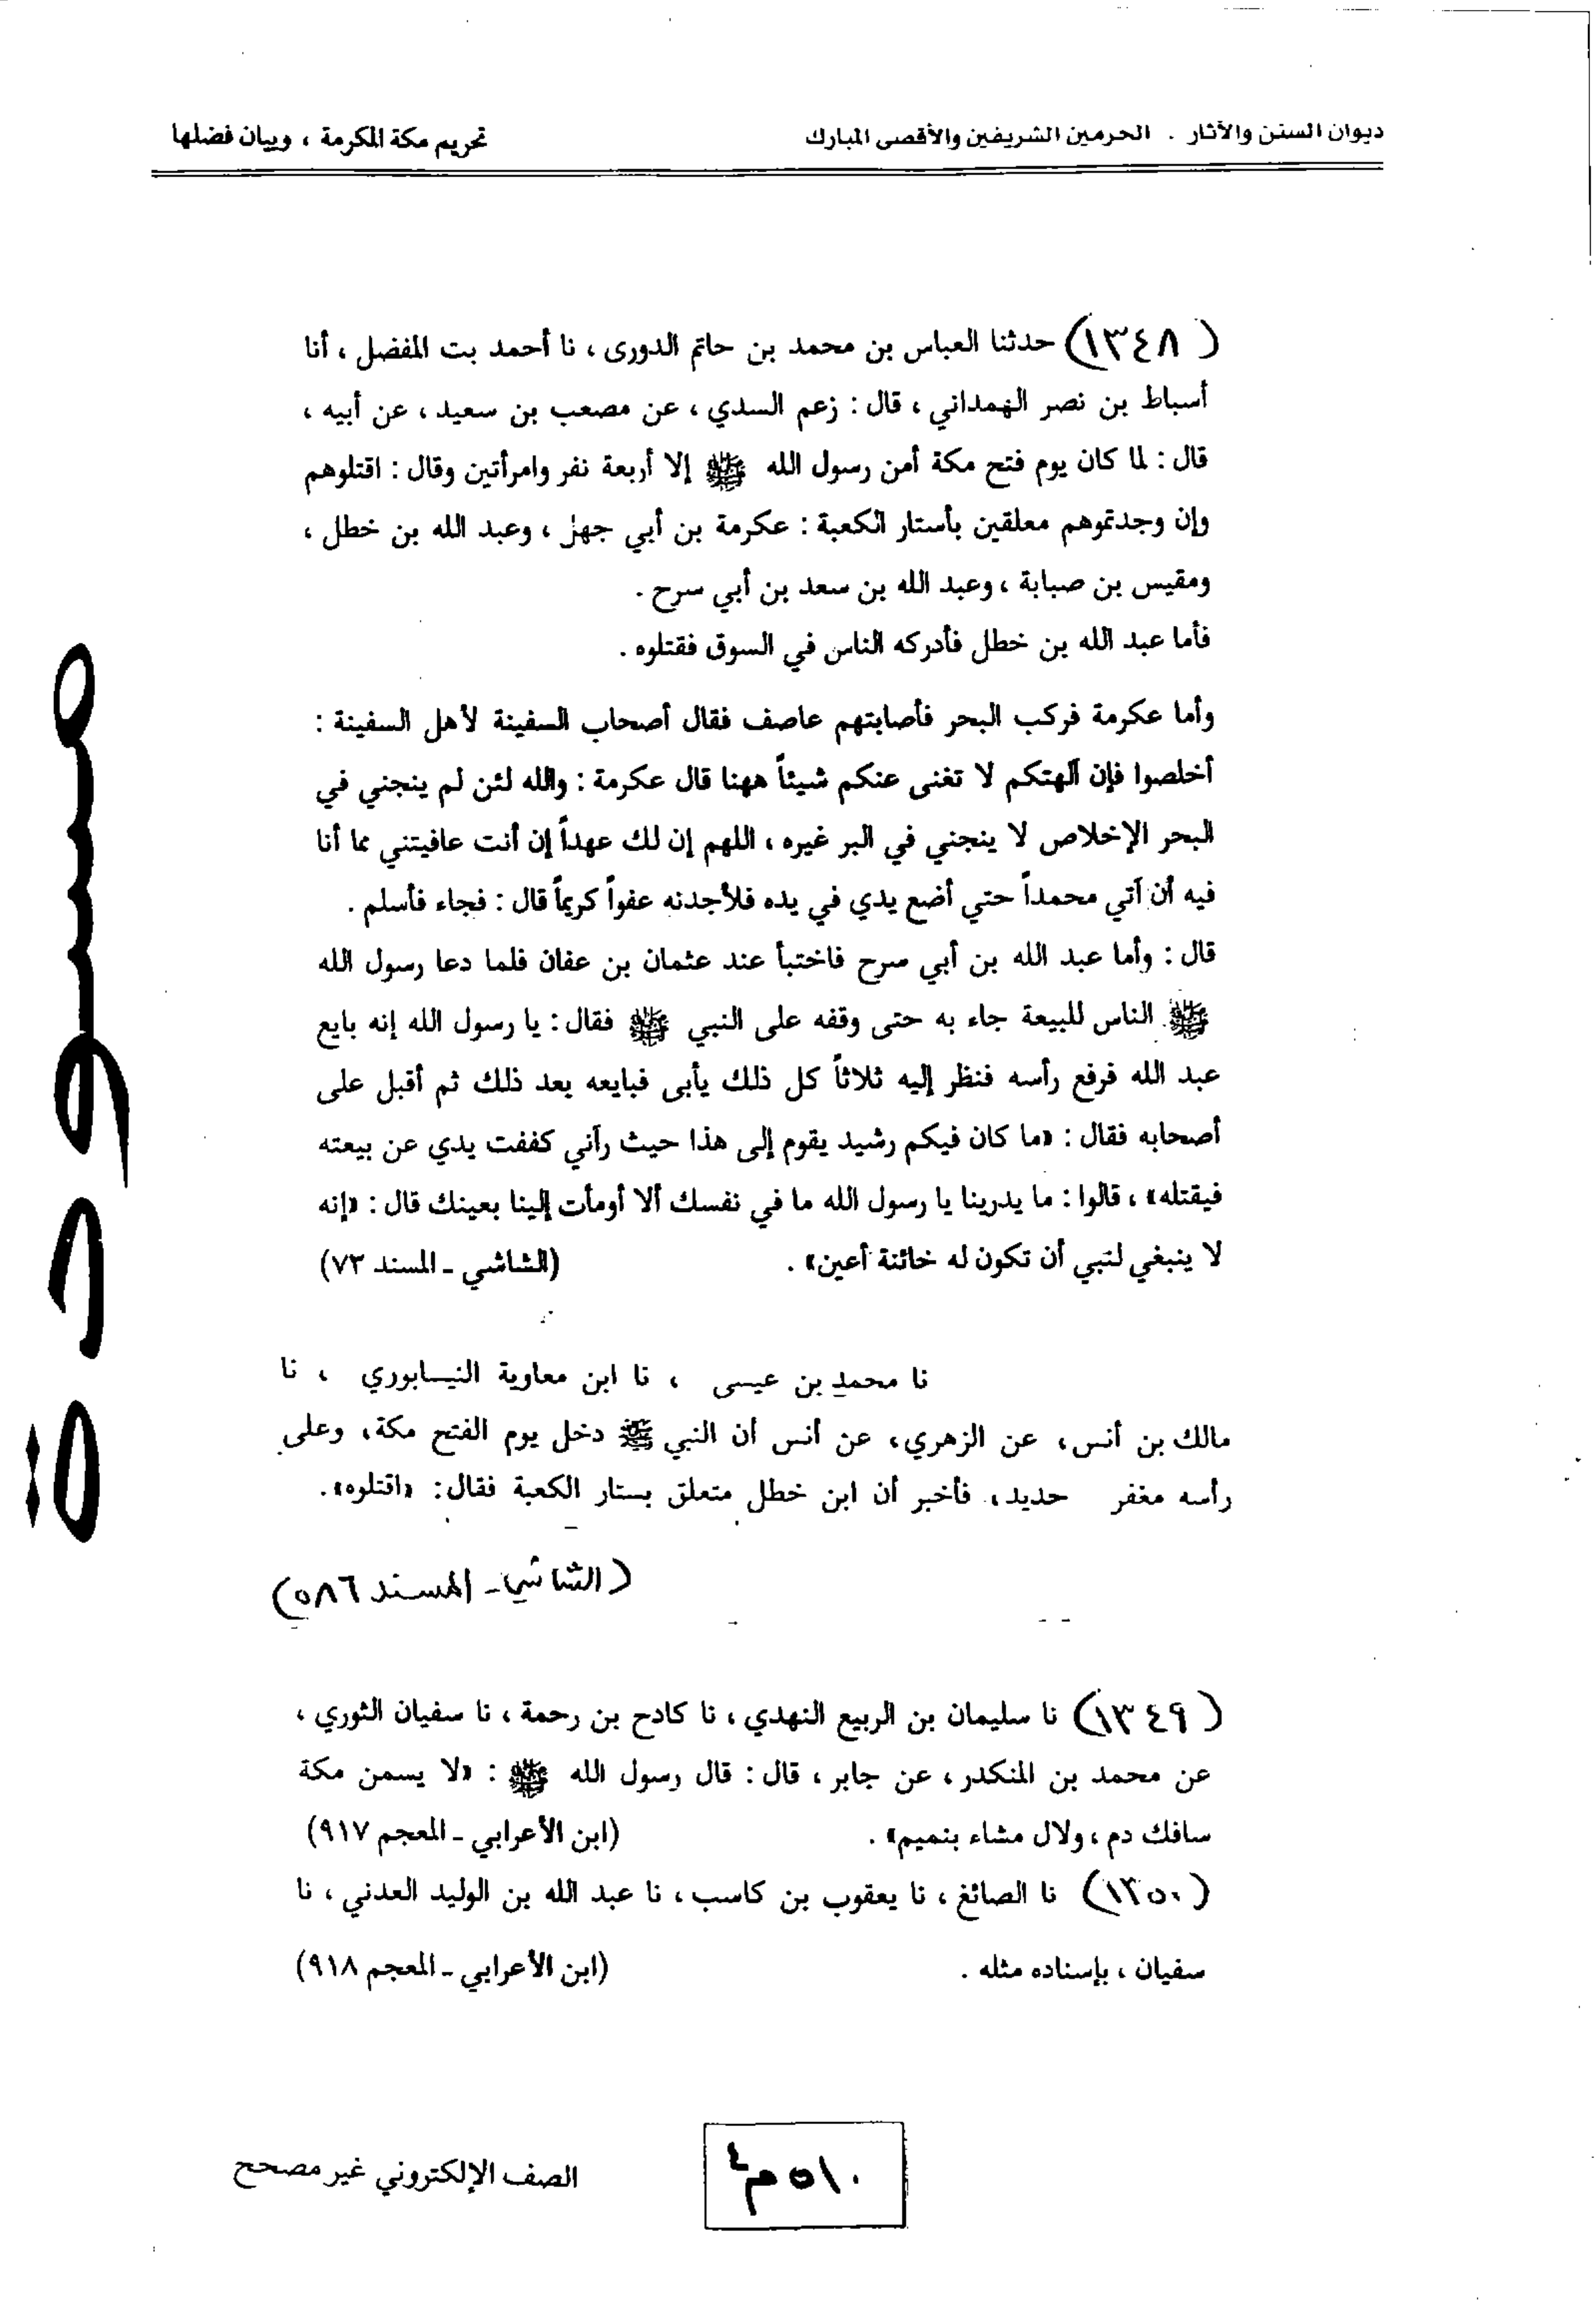 ديوان السنن والآثار . الحرمين الشريفين والأقصى المبارك
تحريم مكة المكرمة ، وبيان فضلها
(١٣٤٨) حدثنا العباس بن محمد بن حاتم الدورى ، نا أحمد بت المفضل ، أنا
أسباط بن نصر الهمداني ، قال : زعم السدي ، عن مصعب بن سعيد ، عن أبيه ،
قال : لما كان يوم فتح مكة أمن رسول الله ﷺ إلا أربعة نفر وامرأتين وقال : اقتلوهم
وإن وجدتموهم معلقين بأستار الكعبة : عكرمة بن أبي جهل ، وعبد الله بن خطل ،
ومقيس بن صبابة ، وعبد الله بن سعد بن أبي سرح .
فأما عبد الله بن خطل فأدركه الناس في السوق فقتلوه .
وأما عكرمة فركب البحر فأصابتهم عاصف فقال أصحاب السفينة لأهل السفينة :
أخلصوا فإن آلهتكم لا تغنى عنكم شيئاً ههنا قال عكرمة : والله لئن لم ينجني في
البحر الإخلاص لا ينجني في البر غيره ، اللهم إن لك عهداً إن أنت عافيتني مما أنا
فيه أن آتي محمداً حتي أضع يدي في يده فلأجدنه عفواً كريماً قال : فجاء فأسلم .
قال : وأما عبد الله بن أبي سرح فاختبأ عند عثمان بن عفان فلما دعا رسول الله
ﷺ الناس للبيعة جاء به حتى وقفه على النبي ﷺ فقال : يا رسول الله إنه بايع
عبد الله فرفع رأسه فنظر إليه ثلاثاً كل ذلك يأبى فبايعه بعد ذلك ثم أقبل على
أصحابه فقال : «ما كان فيكم رشيد يقوم إلى هذا حيث رآني كففت يدي عن بيعته
فيقتله» ، قالوا : ما يدرينا يا رسول الله ما في نفسك ألا أومأت إلينا بعينك قال : «إنه
لا ينبغي لنبي أن تكون له خائنة أعين» .
(الشاشي - المسند ٧٣)
نا محمد بن عيسى ، نا ابن معاوية النيسابوري ، نا
مالك بن أنس، عن الزهري، عن أنس أن النبي ﷺ دخل يوم الفتح مكة، وعلى
رأسه مغفر حديد، فأخبر أن ابن خطل متعلق بستار الكعبة فقال: «اقتلوه».
(الشاشي - المسند ٥٨٦)
(١٣٤٩) نا سليمان بن الربيع النهدي ، نا كادح بن رحمة ، نا سفيان الثوري ،
عن محمد بن المنكدر ، عن جابر ، قال : قال رسول الله ﷺ : «لا يسمن مكة
سافك دم ، ولال مشاء بنميم» .
(ابن الأعرابي - المعجم ٩١٧)
(١٣٥٠) نا الصائغ ، نا يعقوب بن كاسب ، نا عبد الله بن الوليد العدني ، نا
سفيان ، بإسناده مثله .
(ابن الأعرابي - المعجم ٩١٨)
٥١٠ م٤
الصف الإلكتروني غير مصحح
مسودة